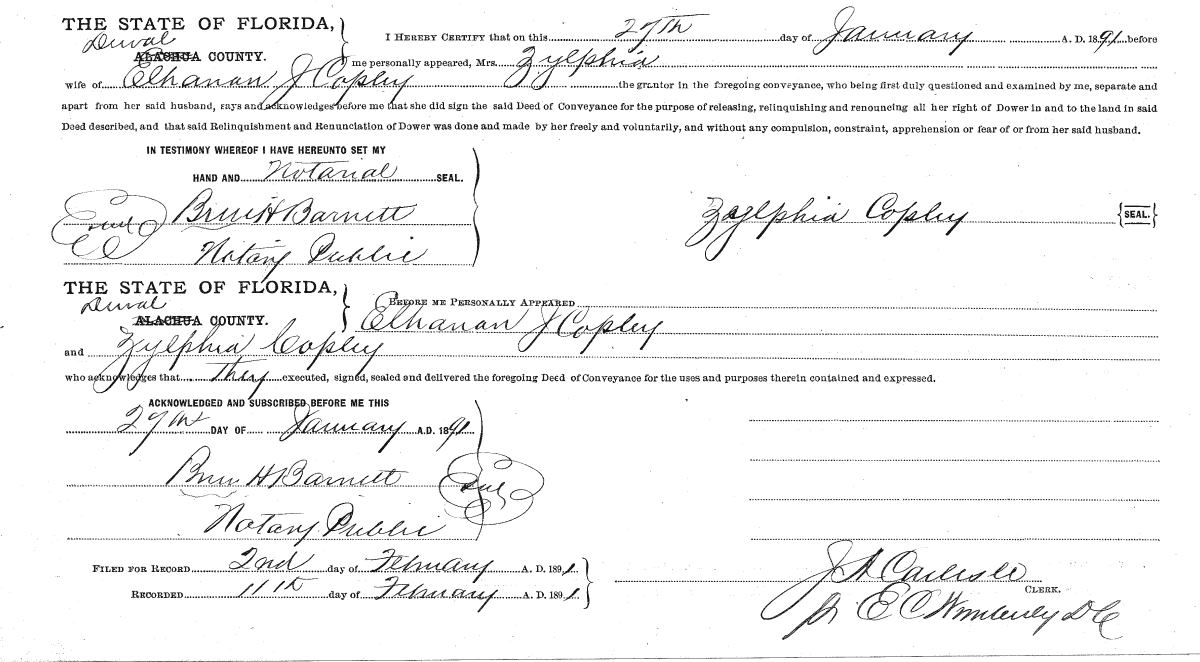 THE STATE OF FLORIDA,
Duval
ALACHUA COUNTY.
I HEREBY CERTIFY that on this 27th day of January A. D. 1891 before
me personally appeared, Mrs. Zylphia
wife of Elhanan J Copley the grantor in the foregoing conveyance, who being first duly questioned and examined by me, separate and
apart from her said husband, says and acknowledges before me that she did sign the said Deed of Conveyance for the purpose of releasing, relinquishing and renouncing all her right of Dower in and to the land in said
Deed described, and that said Relinquishment and Renunciation of Dower was done and made by her freely and voluntarily, and without any compulsion, constraint, apprehension or fear of or from her said husband.
IN TESTIMONY WHEREOF I HAVE HEREUNTO SET MY
HAND AND Notarial SEAL.
Seal H Barnett
Notary Public
Zylphia Copley {SEAL.}
THE STATE OF FLORIDA,
Duval
ALACHUA COUNTY.
BEFORE ME PERSONALLY APPEARED
Elhanan J Copley
and Zylphia Copley
who acknowledges that They executed, signed, sealed and delivered the foregoing Deed of Conveyance for the uses and purposes therein contained and expressed.
ACKNOWLEDGED AND SUBSCRIBED BEFORE ME THIS
27th DAY OF January A.D. 1891
H Barnett Seal
Notary Public
FILED FOR RECORD 2nd day of February A. D. 1891.
RECORDED 11th day of February A. D. 1891.
J A Carlisle
CLERK.
pr E C Wimberly D C